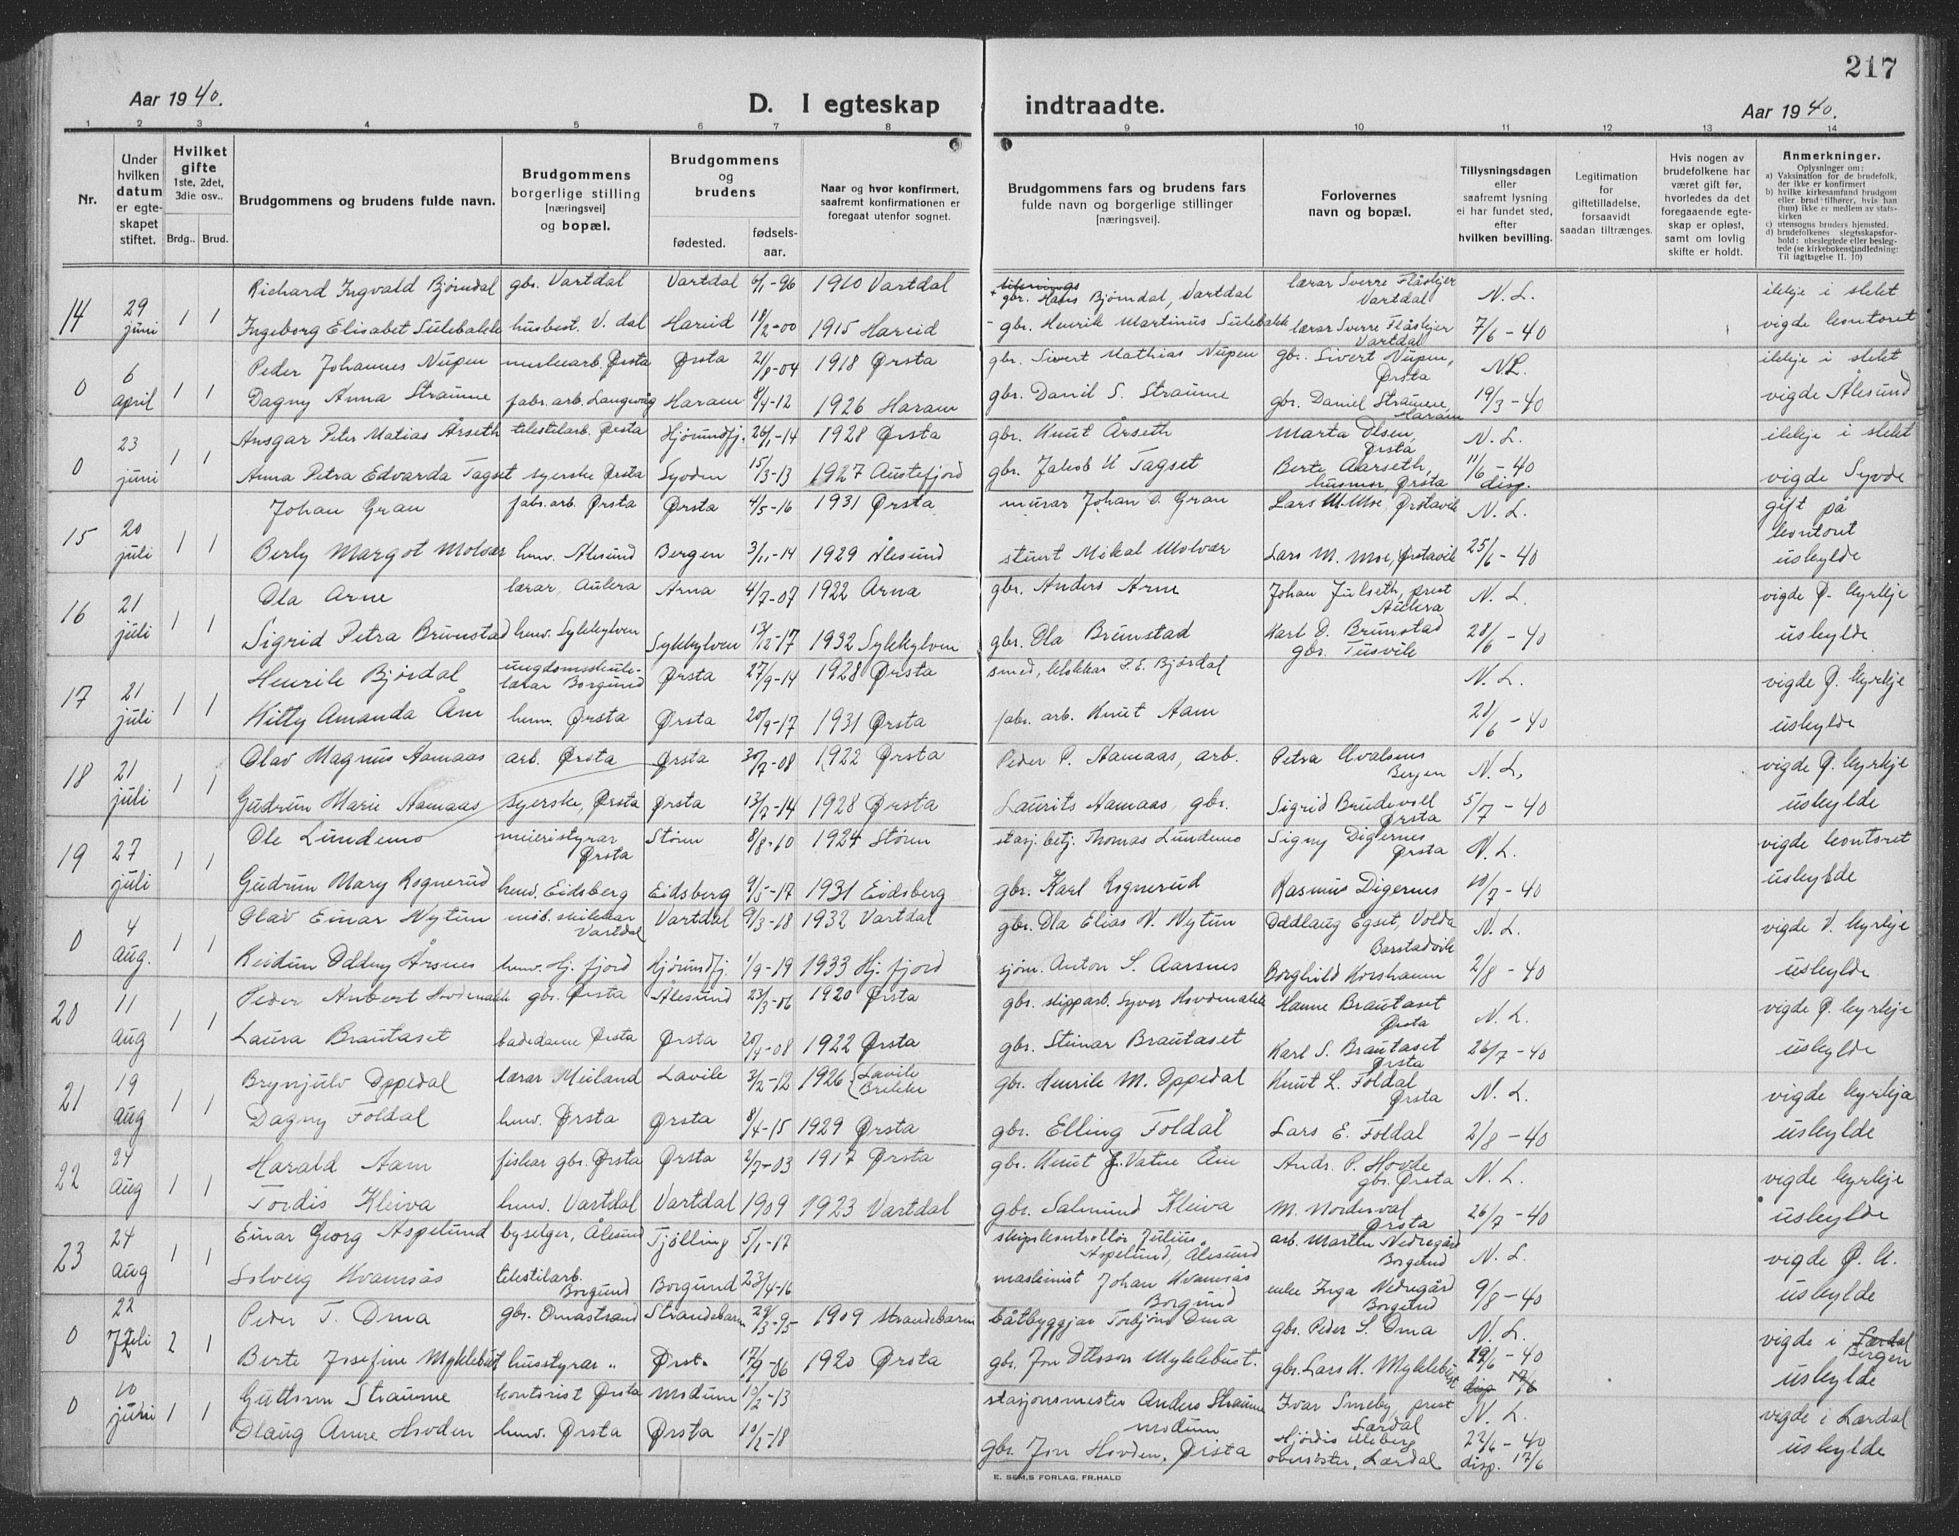 217
Aar 1940.
D. I egteskap indtraadte.
Aar 1940.
1 2 3 4 5 6 7 8 9 10 11 12 13 14
Nr.
Under hvilken datum er egteskapet stiftet.
Hvilket gifte 1ste, 2det, 3die osv..
Brdg.. Brud.
Brudgommens og brudens fulde navn.
Brudgommens borgerlige stilling [næringsvei] og bopæl.
Brudgommens og brudens
fødested. fødsels-aar.
Naar og hvor konfirmert, saafremt konfirmationen er foregaat utenfor sognet.
Brudgommens fars og brudens fars fulde navn og borgerlige stillinger [næringsvei].
Forlovernes navn og bopæl.
Tillysningsdagen eller saafremt lysning ei har fundet sted, efter hvilken bevilling.
Legitimation for giftetilladelse, forsaavidt saadan tiltrænges.
Hvis nogen av brudefolkene har været gift før, hvorledes da det foregaaende egteskap er opløst, samt om lovlig skifte er holdt.
Anmerkninger.
Oplysninger om:
a) Vaksination for de brudefolk, der ikke er konfirmert
b) hvilke kirkesamfund brudgom eller brud tilhører, hvis han (hun) ikke er medlem av statskirken
c) utensogns bruders hjemsted.
d) brudefolkenes slegtsskapsforhold: ubeslegtede eller beslegtede (se kirkebokens indledning: Til iagttagelse II. 10)
14 29 juni 1 1 Richard Ingvald Bjørndal gbr. Vartdal Vartdal 6/1-96 1910 Vartdal gbr. Hans Bjørndal, Vartdal lærar Sverre Flåskjer Vartdal N. L. ikkje i slekt
Ingeborg Elisabet Sulebakk husbest. V.dal Hareid 18/2-00 1915 Hareid gbr. Henrik Martinus Sulebakk lærar Sverre Flåskjer Vartdal 7/6-40 vigde kontoret
0 6 april 1 1 Peder Johannes Nupen Ørsta Ørsta 21/8-04 1918 Ørsta gbr. Sivert Mathias Nupen gbr. Sivert Nupen, Ørsta N.L. ikkje i slekt
Dagny Anna Straume fabr. arb. Langevåg Haram 4/4-12 1926 Haram gbr. Danil S. Straume gbr. Daniel Straume, Haram 19/3-40 vigde Ålesund
0 23 juni 1 1 Ansgar Peter Matias Årseth tekstilarb. Ørsta Hjørundfj. 26/1-14 1928 Ørsta gbr. Knut Årseth Marta Olsen, Ørsta N. L. ikkje i slekt
Anna Petra Edvarda Tagset syerske Ørsta Syvden 15/3-13 1927 Austefjord gbr. Jakob K Tagset Berte Aarseth, husmor Ørsta 11/6-40 disp. vigde Syvde
15 20 juli 1 1 Johan Gran fabr. arb. Ørsta Ørsta 4/5-16 1931 Ørsta murar Johan D. Gran Lars M. Moe, Ørstavik N. L. gift på kontoret
Berly Margot Molvær heim. Ålesund Bergen 3/11-14 1929 Ålesund stuert Mikal Molvær Lars M. Moe, Ørstavik 25/6-40 uskylde
16 21 juli 1 1 Ola Arne lærar, Aukra Arna 4/7-07 1922 Arna gbr. Anders Arne Johan Julseth, prest Aukra N. L. vigde Ø. kyrkje
Sigrid Petra Brunstad heim. Sykkylven Sykkylven 13/12-17 1932 Sykkylven gbr. Ola Brunstad Karl D. Brunstad gbr. Tusvik 28/6-40 uskylde
17 21 juli 1 1 Henrik Bjørdal ungdomsskule-lærar Borgund Ørsta 27/9-14 1928 Ørsta smed, klokkar P. E. Bjørdal N. L. vigde Ø. kyrkje
Kitty Amanda Åm heim. Ørsta Ørsta 20/9-17 1931 Ørsta fabr. arb. Knut Aam 28/6-40 uskylde
18 21 juli 1 1 Olav Magnus Aamaas arb. Ørsta Ørsta 30/7-08 1922 Ørsta Peder P. Aamaas, arb. Petra Hvalsens Bergen N. L. vigde Ø. kyrkje
Gudrun Marie Aamaas syerske, Ørsta Ørsta 13/7-14 1928 Ørsta Laurits Aamaas, gbr. Sigrid Brudevoll Ørsta 5/7-40 uskylde
19 27 juli 1 1 Ole Lundemo meieristyrar Ørsta Støren 8/8-10 1924 Støren stasj. betj. Thomas Lundemo Signy Digernes Ørsta N. L. vigde kontoret
Gudrun Mary Rognerud heim. Eidsberg Eidsberg 9/5-17 1931 Eidsberg gbr. Karl Rognerud Rasmus Digernes 10/7-40 uskylde
0 4 aug. 1 1 Olav Einar Nytun møb. snikkar Vartdal Vartdal 9/3-18 1932 Vartdal gbr. Ola Elias N. Nytun Oddlaug Egset, Volda N. L. vigde V. kyrkje
Reidun Oddny Årsnes heim. Hj. fjord Hjørundfj. 1/9-19 1933 Hj. fjord sjøm. Anton S. Aarsnes Borghild Korshamn Barstadvik 2/8-40 uskylde
20 11 aug 1 1 Peder Anbert Hovdenakk gbr. Ørsta Ålesund 23/3-06 1920 Ørsta gbr. skipparb. Syver Hovdenakk Hanne Brautaset Ørsta N. L. vigde Ø. kyrkje
Laura Brautaset badedame Ørsta Ørsta 20/4-08 1922 Ørsta gbr. Steinar Brautaset Karl S. Brautaset Ørsta 26/7-40 uskylde
21 19 aug 1 1 Brynjulv Oppedal lærar Meiland Lavik 3/2-12 1926 {Lavik Brekke gbr. Henrik M. Oppedal Knut L. Foldal Ørsta N. L. vigde kyrkja
Dagny Foldal heim. Ørsta Ørsta 8/4-15 1929 Ørsta gbr. Elling Foldal Lars E. Foldal 2/8-40 uskylde
22 24 aug 1 1 Harald Aam fiskar gbr. Ørsta Ørsta 2/7-03 1917 Ørsta gbr. Knut J. Vatne Åm Andr. P. Hovde gbr. Ørsta N. L. vigde kyrkje
Tordis Kleiva heim. Vartdal Vartdal 1909 1923 Vartdal gbr. Salmund Kleiva M. Norderval Ørsta 26/7-40 uskylde
23 24 aug 1 1 Einar Georg Aspelund byselger, Ålesund Tjølling 5/1-17 skipskontrollør Julius Aspelund, Ålesund arb. Martin Nedregård Borgund N. L. vigde Ø. K.
Solveig Kvamsås tekstilarb. Borgund Borgund 23/4-16 maskinist Johan Kvamsås Borgund enke Inga Nedregård Borgund 9/8-40 uskylde
0 22 juli 2 1 Peder T. Oma gbr. Omastrand Strandebarm 29/3-95 1909 Strandebarm båtbyggjar Torbjørn Oma gbr. Peder S. Oma N. L. vigde i Lærdal Bergen
Berte Josefine Myklebust husstyrar " Ørst. 17/9-06 1920 Ørsta gbr. Jon Olsson Myklebust. gbr. Lars K. Myklebust 19/6-40 disp 17/6 uskylde
0 10 juni 1 1 Guttorm Straume kontorist Ørsta Modum 10/2-13 stasjonsmester Anders Straume Modum Ivar Smeby, prest Lærdal N. L. vigde i Lærdal
Olaug Anne Hovden heim. Ørsta Ørsta 10/2-18 gbr. Jon Hovden, Ørsta Hjørdis Uleberg oversøster, Lærdal 22/6-40 disp. 17/6 uskylde
E. SEM,S FORLAG, FR.HALD